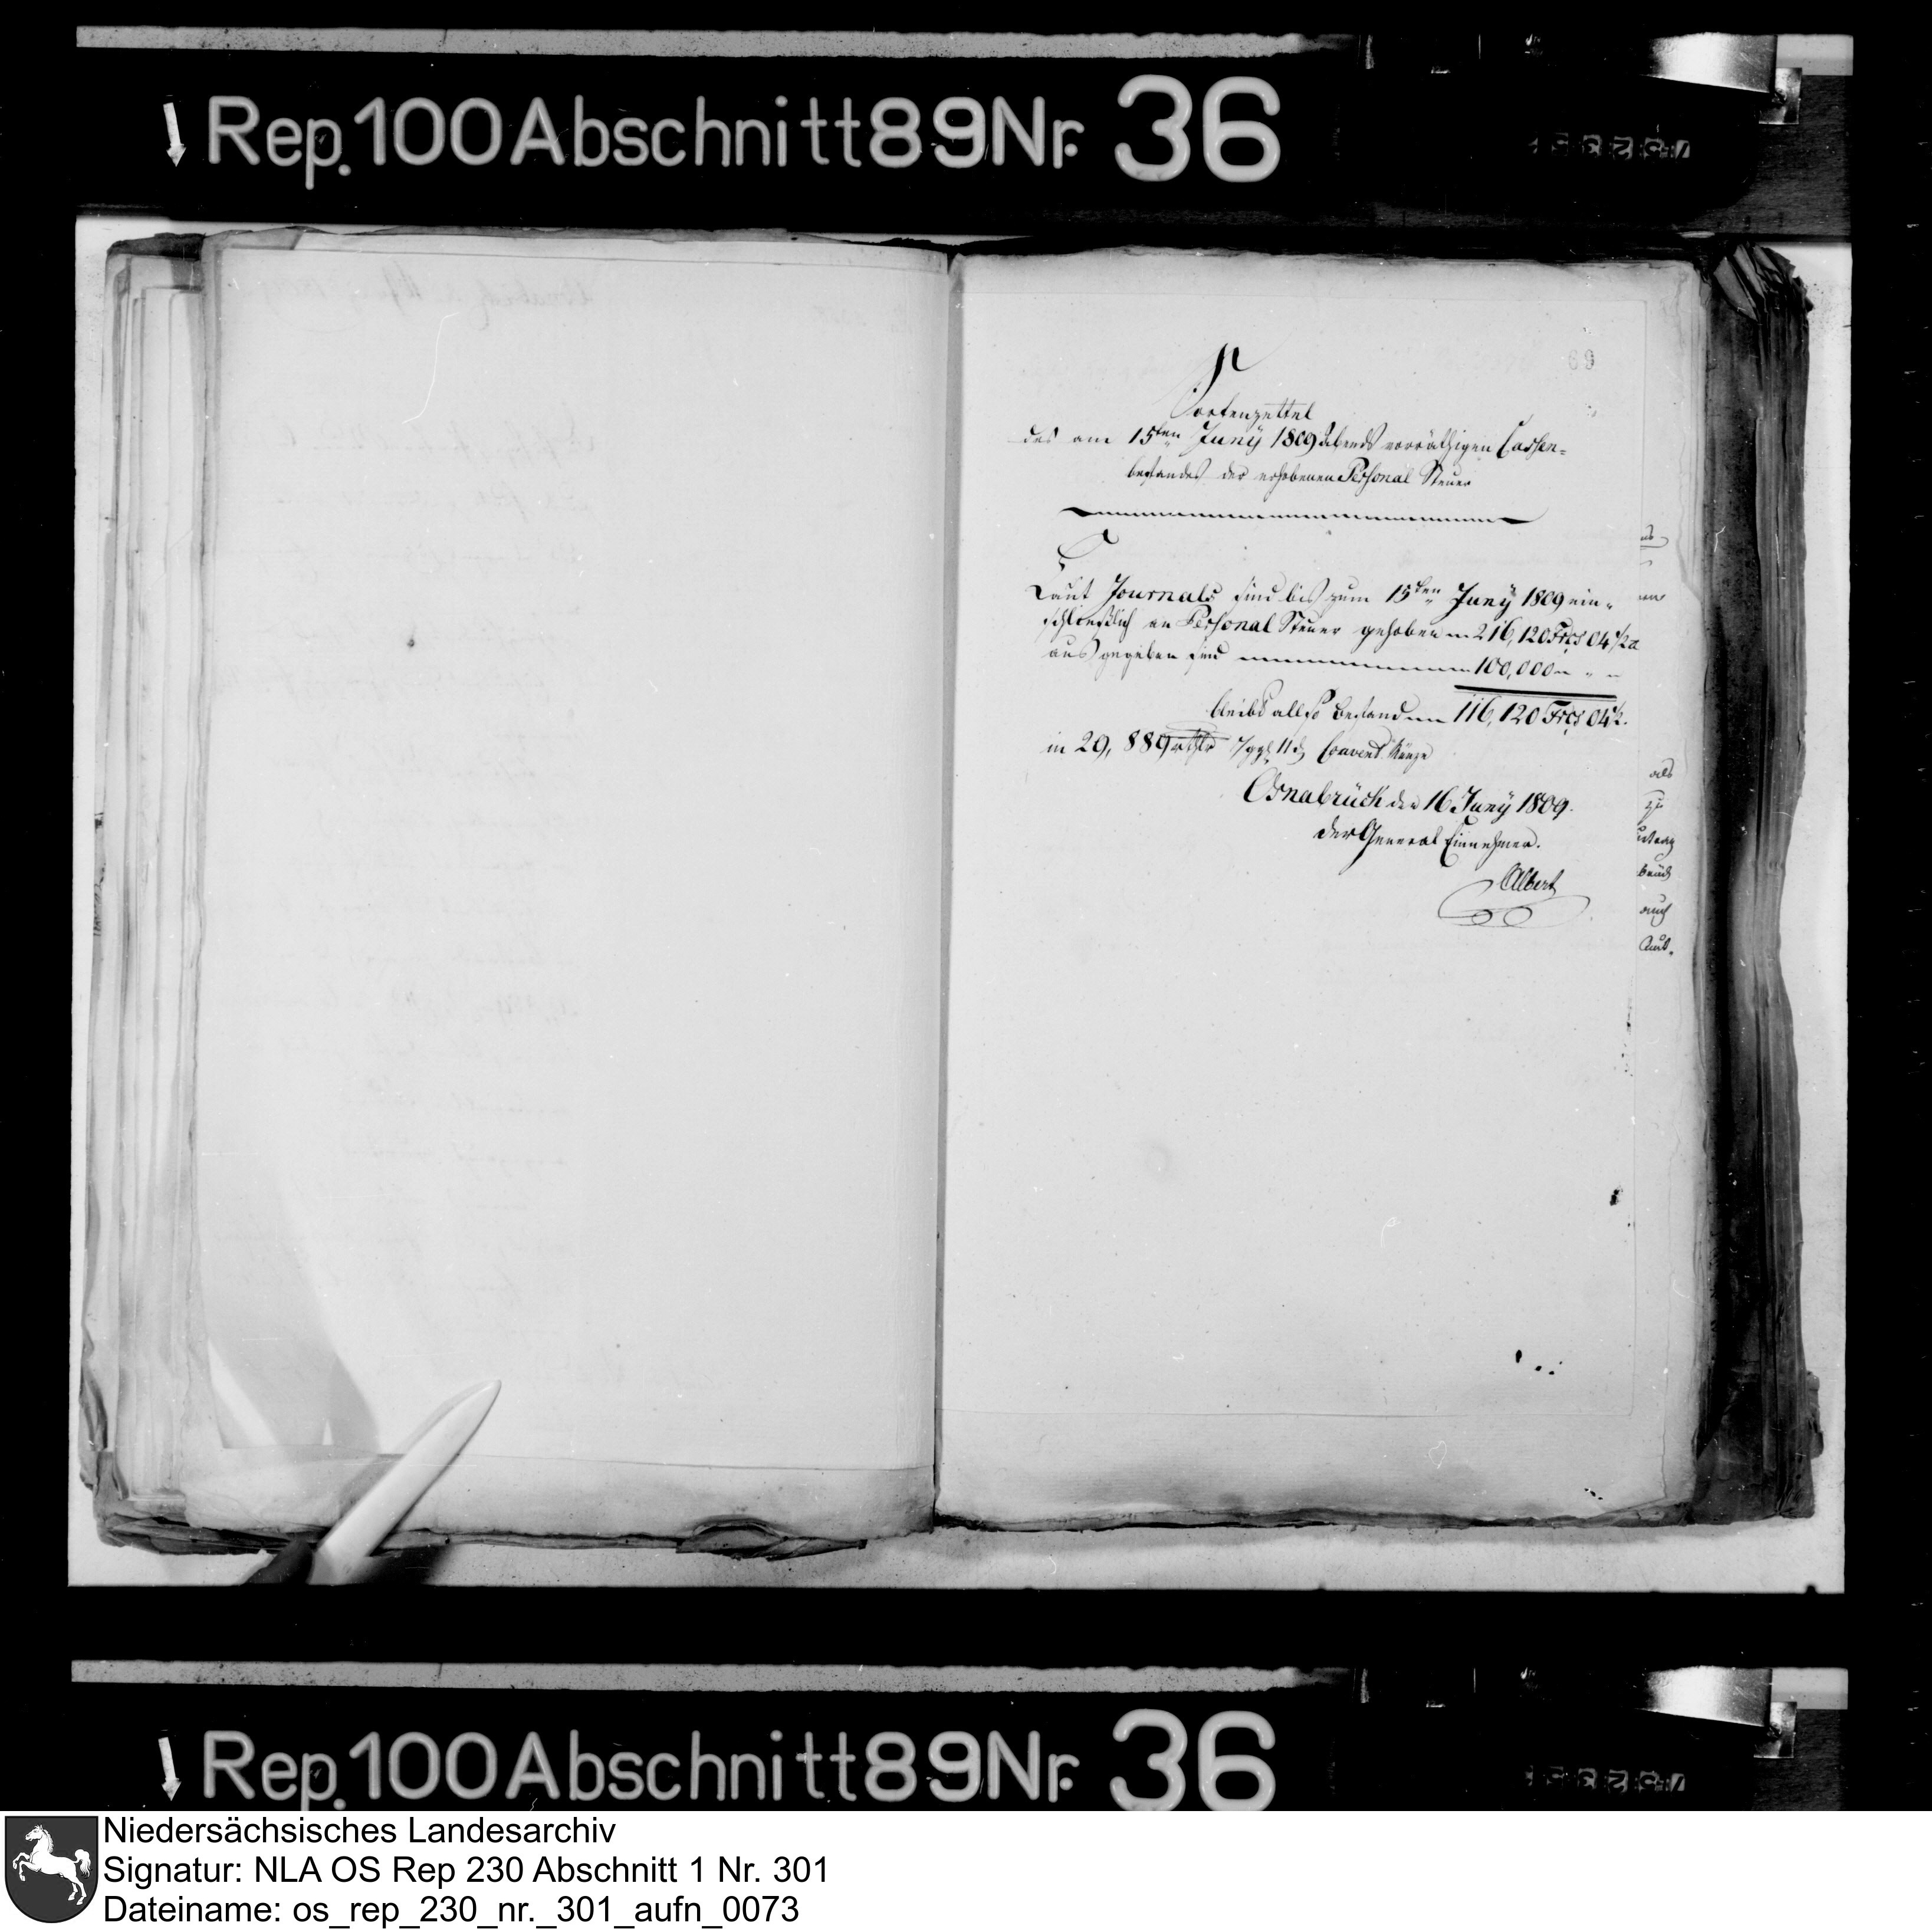 Rep. 100 Abschnitt 89 Nr. 36
69
Sortenzettel
des am 15ten Juny 1809 Abends vorräthigen Cassen-
bestandes der erhobenen Personal Steuer
Laut Journals sind bis zum 15ten Juny 1809 ein-
schließlich an Personal Steuer gehoben 216,120 Frcs 04 1/2
ausgegeben sind 100,000 " "
bleibt allso Bestand 116,120 Frcs 04 1/2.
in 29,889 rthlr 7 ggl 11 d Convent Münze
Osnabrück den 16 Juny 1809.
Der General Einnehmer.
Albert
als
zu
auch
Rep. 100 Abschnitt 89 Nr. 36
Niedersächsisches Landesarchiv
Signatur: NLA OS Rep 230 Abschnitt 1 Nr. 301
Dateiname: os_rep_230_nr._301_aufn_0073